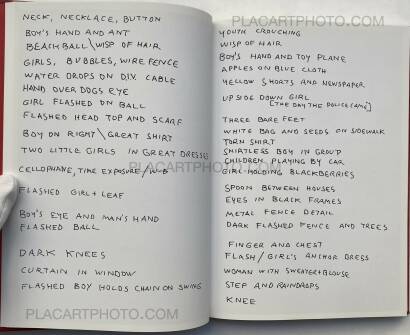 PLACARTPHOTO.COM
NECK, NECKLACE, BUTTON
BOY'S HAND AND ANT
BEACH BALL \ WISP OF HAIR
GIRLS, BUBBLES, WIRE FENCE
WATER DROPS ON DIV. CABLE
HAND OVER DOGS EYE
GIRL FLASHED ON BALL
FLASHED HEAD TOP AND SCARF
BOY ON RIGHT \ GREAT SHIRT
TWO LITTLE GIRLS IN GREAT DRESSES
CELLOPHANE, TIME EXPOSURE /
FLASHED GIRL + LEAF
BOY'S EYE AND MAN'S HAND
FLASHED BALL
DARK KNEES
CURTAIN IN WINDOW
FLASHED BOY HOLDS CHAIN ON SWING
PLACARTPHOTO.COM
YOUTH CROUCHING
WISP OF HAIR
BOY'S HAND AND TOY PLANE
APPLES ON BLUE CLOTH
YELLOW SHORTS AND NEWSPAPER
UPSIDE DOWN GIRL
[THE DAY THE POLICE CAME]
THREE BARE FEET
WHITE BAG AND SEEDS ON SIDEWALK
TORN SHIRT
SHIRTLESS BOY IN GROUP
CHILDREN PLAYING BY CAR
GIRL HOLDING BLACKBERRIES
SPOON BETWEEN HOUSES
EYES IN BLACK FRAMES
METAL FENCE DETAIL
DARK FLASHED FENCE AND TREES
FINGER AND CHEST
FLASH / GIRL'S ANCHOR DRESS
WOMAN WITH SWEATER + BLOUSE
STEP AND RAINDROPS
KNEE
PLACARTPHOTO.COM